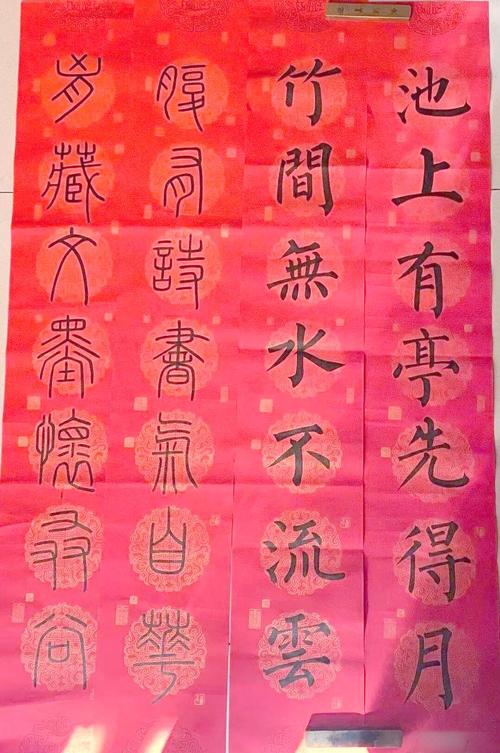 池上有亭先得月
竹間無水不流雲
腹有詩書氣自華
胸藏文墨懷若谷